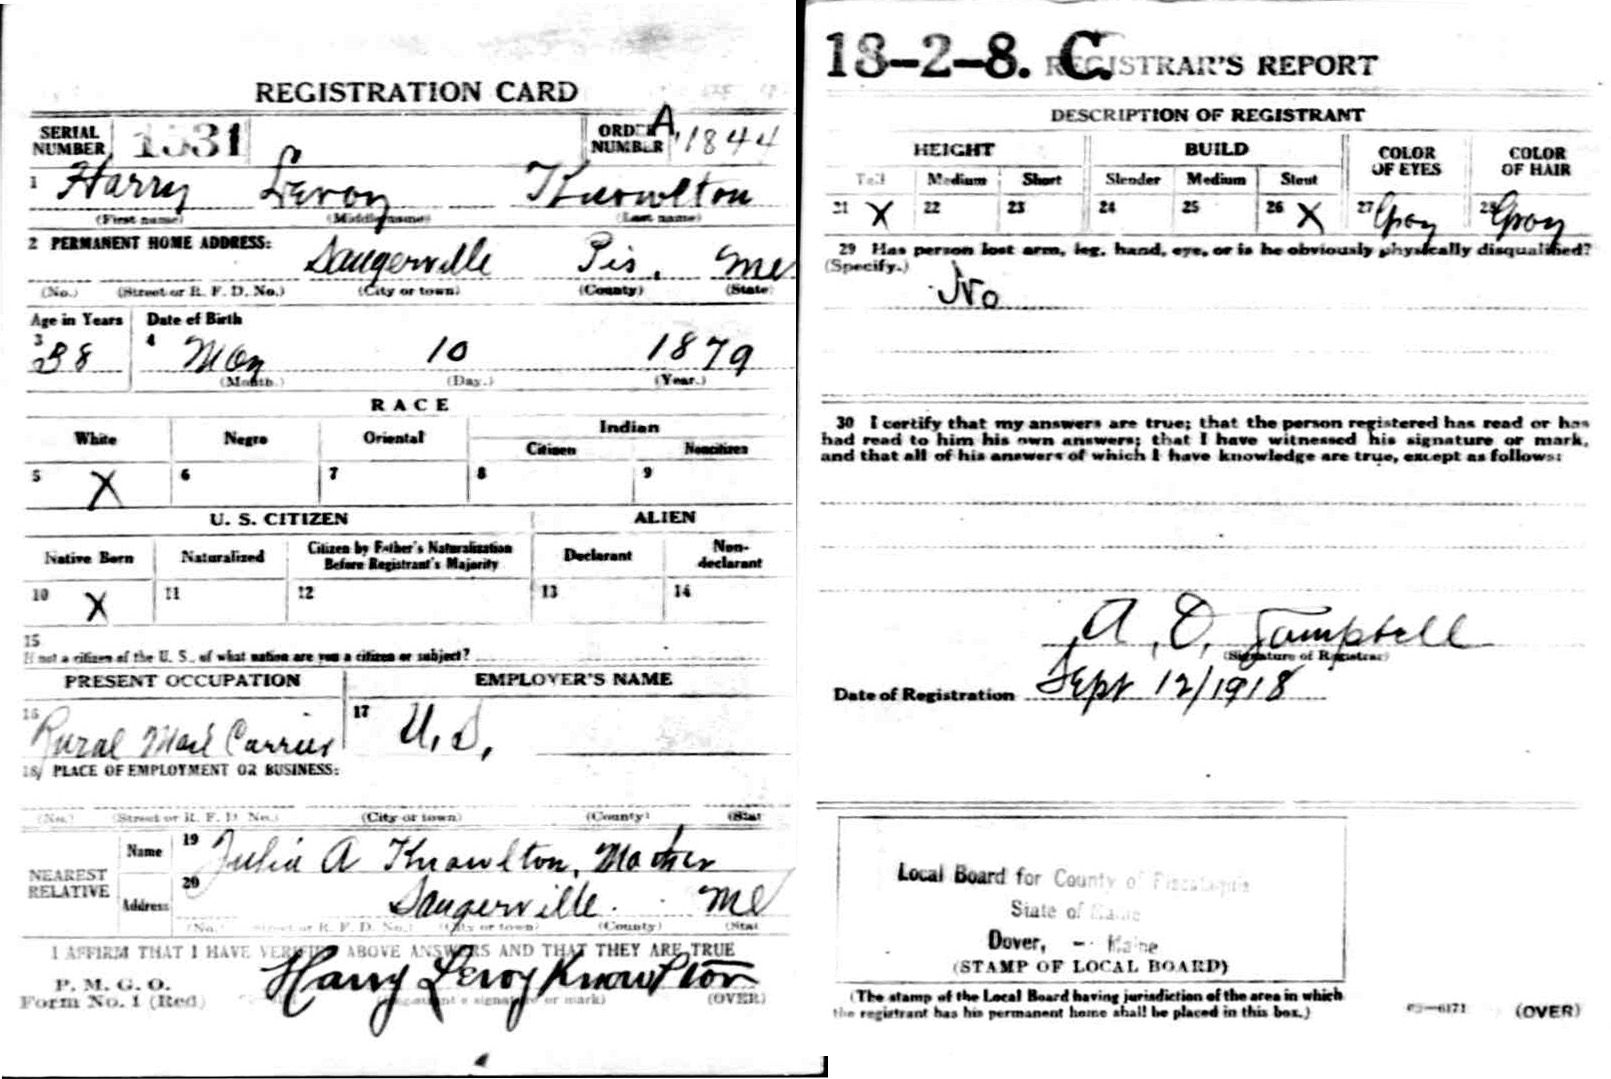 REGISTRATION CARD
SERIAL NUMBER 1531 ORDER NUMBER A 1844
1 Harry Leroy Knowlton
(First name) (Middle name) (Last name)
2 PERMANENT HOME ADDRESS:
Sangerville Pis. Me
(No.) (Street or R. F. D. No.) (City or town) (County) (State)
Age in Years Date of Birth
3 38 4 May 10 1879
(Month.) (Day.) (Year.)
RACE
White Negro Oriental Indian
Citizen Noncitizen
5 X 6 7 8 9
U. S. CITIZEN ALIEN
Native Born Naturalized Citizen by Father's Naturalization Before Registrant's Majority Declarant Non-declarant
10 X 11 12 13 14
15
If not a citizen of the U. S., of what nation are you a citizen or subject?
PRESENT OCCUPATION EMPLOYER'S NAME
16 Rural Mail Carrier 17 U. S.
18 PLACE OF EMPLOYMENT OR BUSINESS:
(No.) (Street or R. F. D. No.) (City or town) (County) (Stat
NEAREST RELATIVE
Name 19 Julia A Knowlton, Mother
Address 20 Sangerville Me
(No.) (Street or R. F. D. No.) (City or town) (County) (Stat
I AFFIRM THAT I HAVE VERIFIED ABOVE ANSWERS AND THAT THEY ARE TRUE
P. M. G. O.
Form No. 1 (Red)
Harry Leroy Knowlton
(Registrant's signature or mark) (OVER)
13-2-8. C.
REGISTRAR'S REPORT
DESCRIPTION OF REGISTRANT
HEIGHT BUILD COLOR OF EYES COLOR OF HAIR
Tall Medium Short Slender Medium Stout
21 X 22 23 24 25 26 X 27 Gray 28 Gray
29 Has person lost arm, leg, hand, eye, or is he obviously physically disqualified?
(Specify.)
No
30 I certify that my answers are true; that the person registered has read or has
had read to him his own answers; that I have witnessed his signature or mark,
and that all of his answers of which I have knowledge are true, except as follows:
A. O. Campbell
(Signature of Registrar)
Date of Registration Sept 12/1918
Local Board for County of Piscataquis
State of Maine
Dover, - Maine
(STAMP OF LOCAL BOARD)
(The stamp of the Local Board having jurisdiction of the area in which
the registrant has his permanent home shall be placed in this box.)
(OVER)